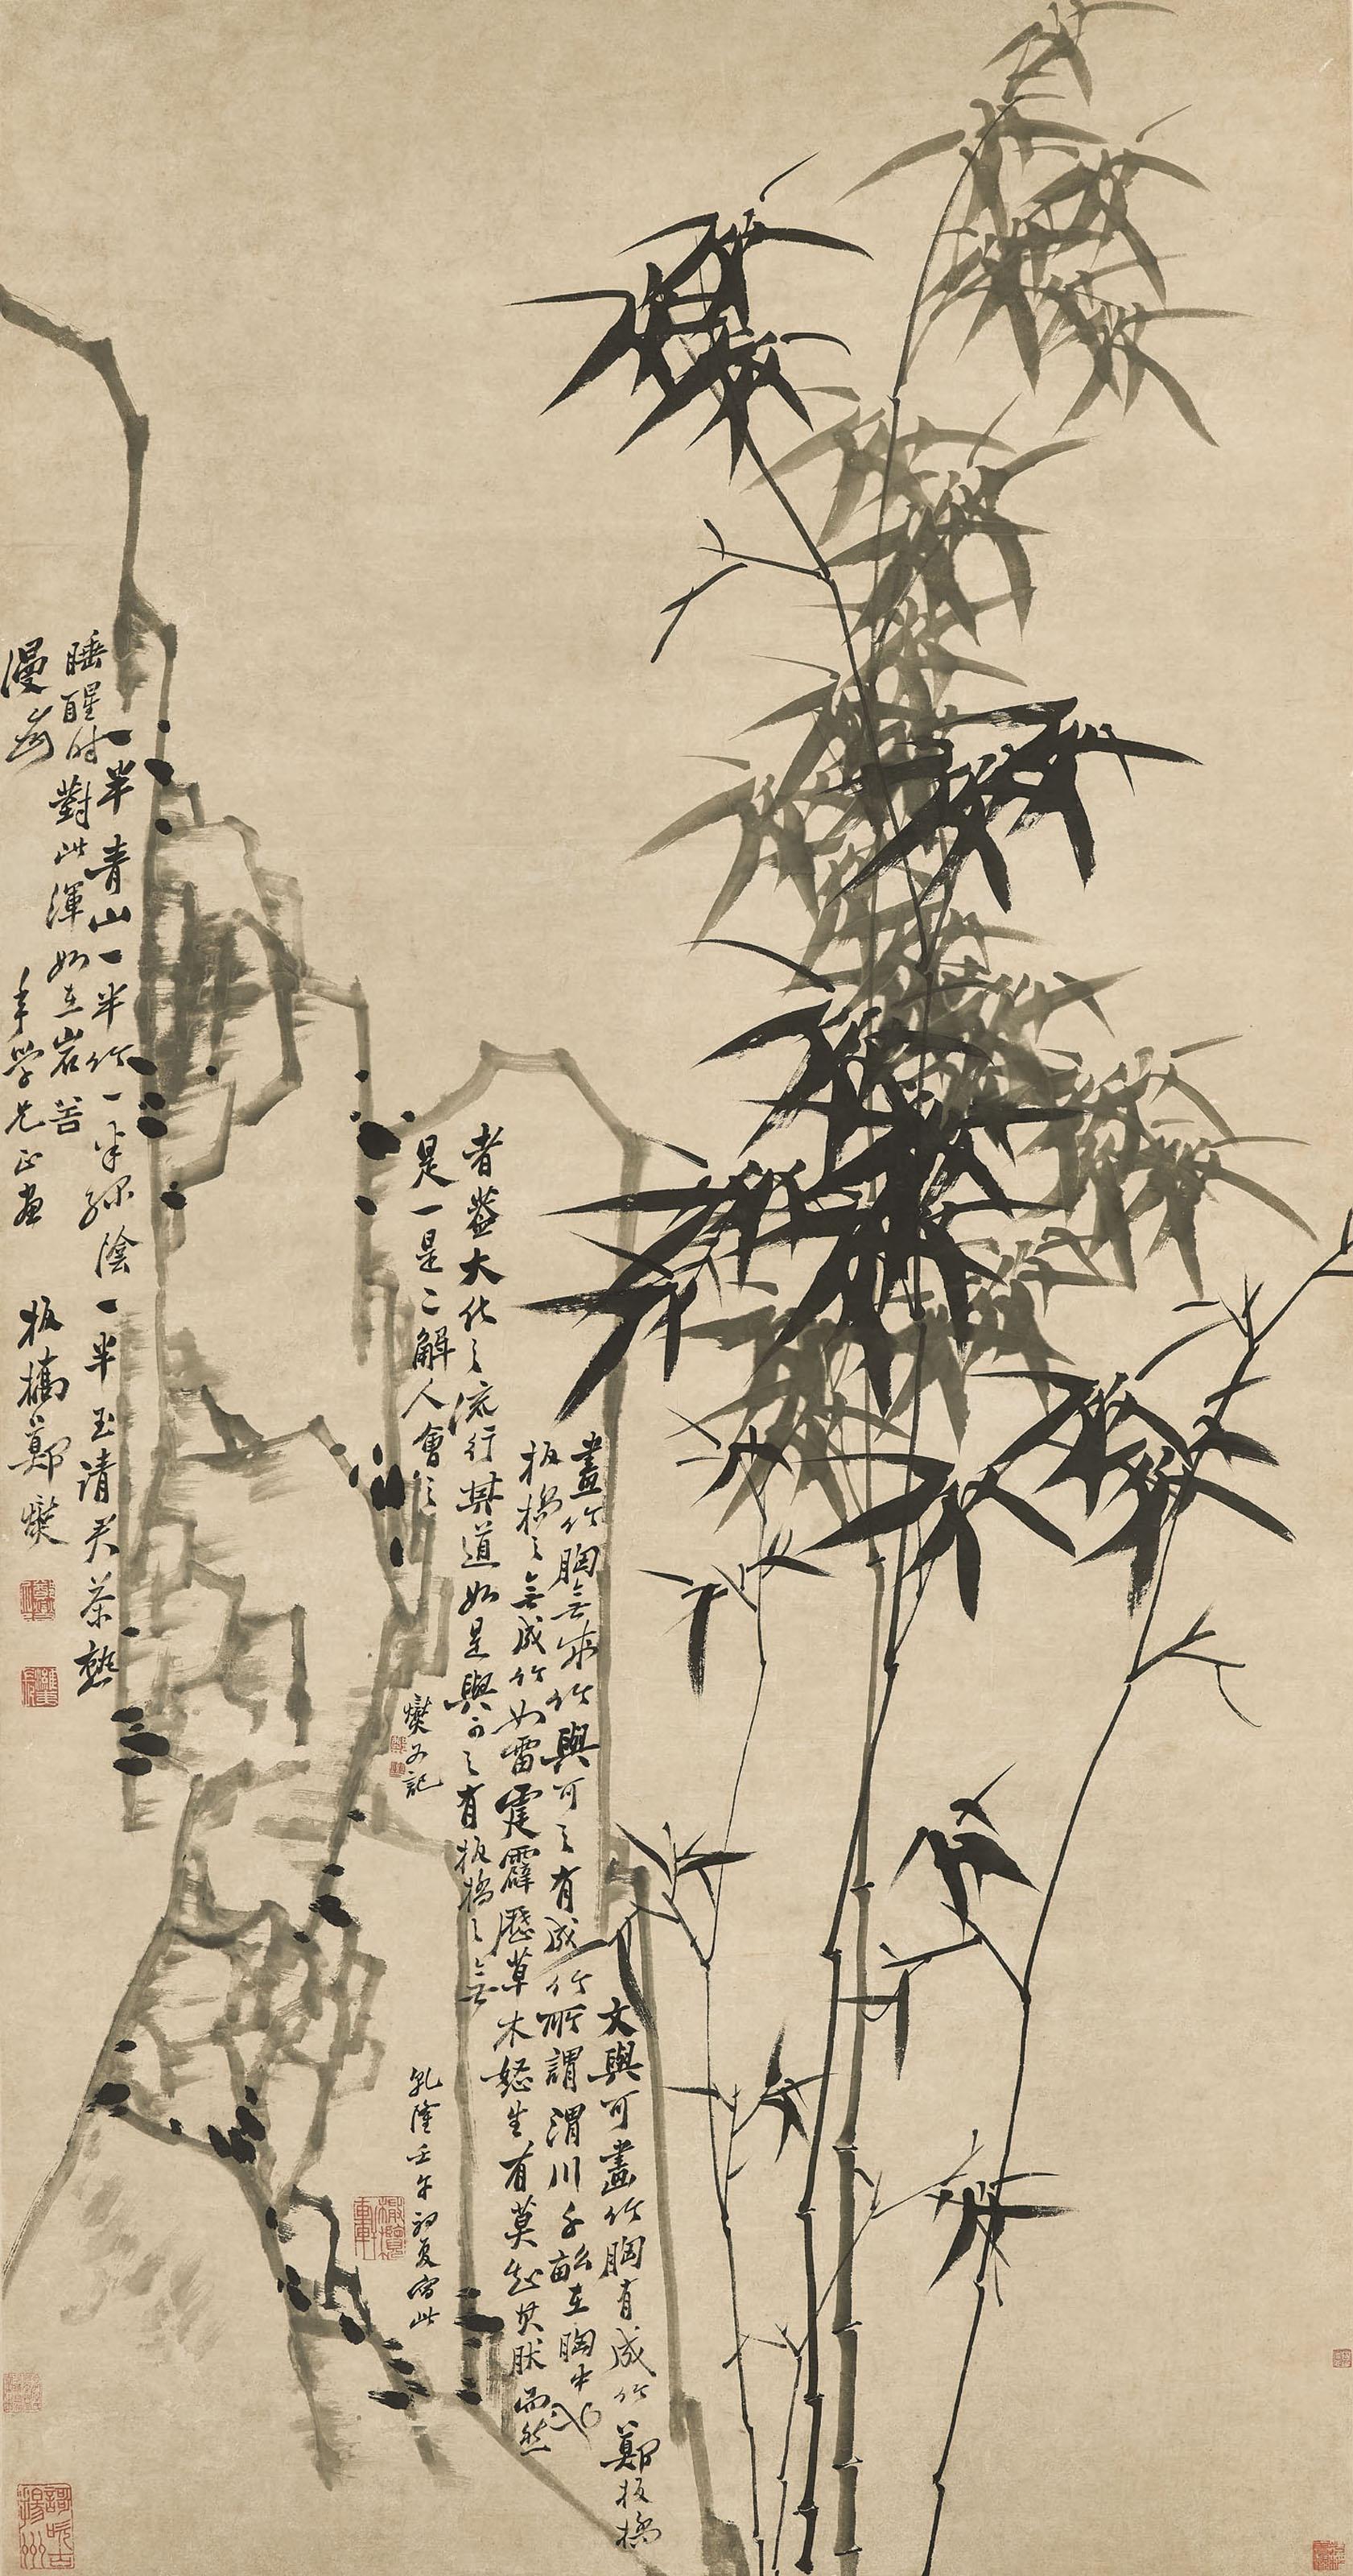 文與可畫竹胸有成竹鄭板橋
畫竹胸無成竹與可之有成竹所謂渭川千畝在胸中也
板橋之無成竹如雷霆霹歷草木怒生有莫知其然而然
者蓋大化之流行其道如是與可之有板橋之無
是一是二解人會之
燮又記
乾隆壬午初夏寫此
橄欖軒
一半青山一半竹一半綠陰一半玉請君茶熟
睡醒時對此渾如在岩谷
漫為
年學兄正畫
板橋鄭燮
歌吹古揚州